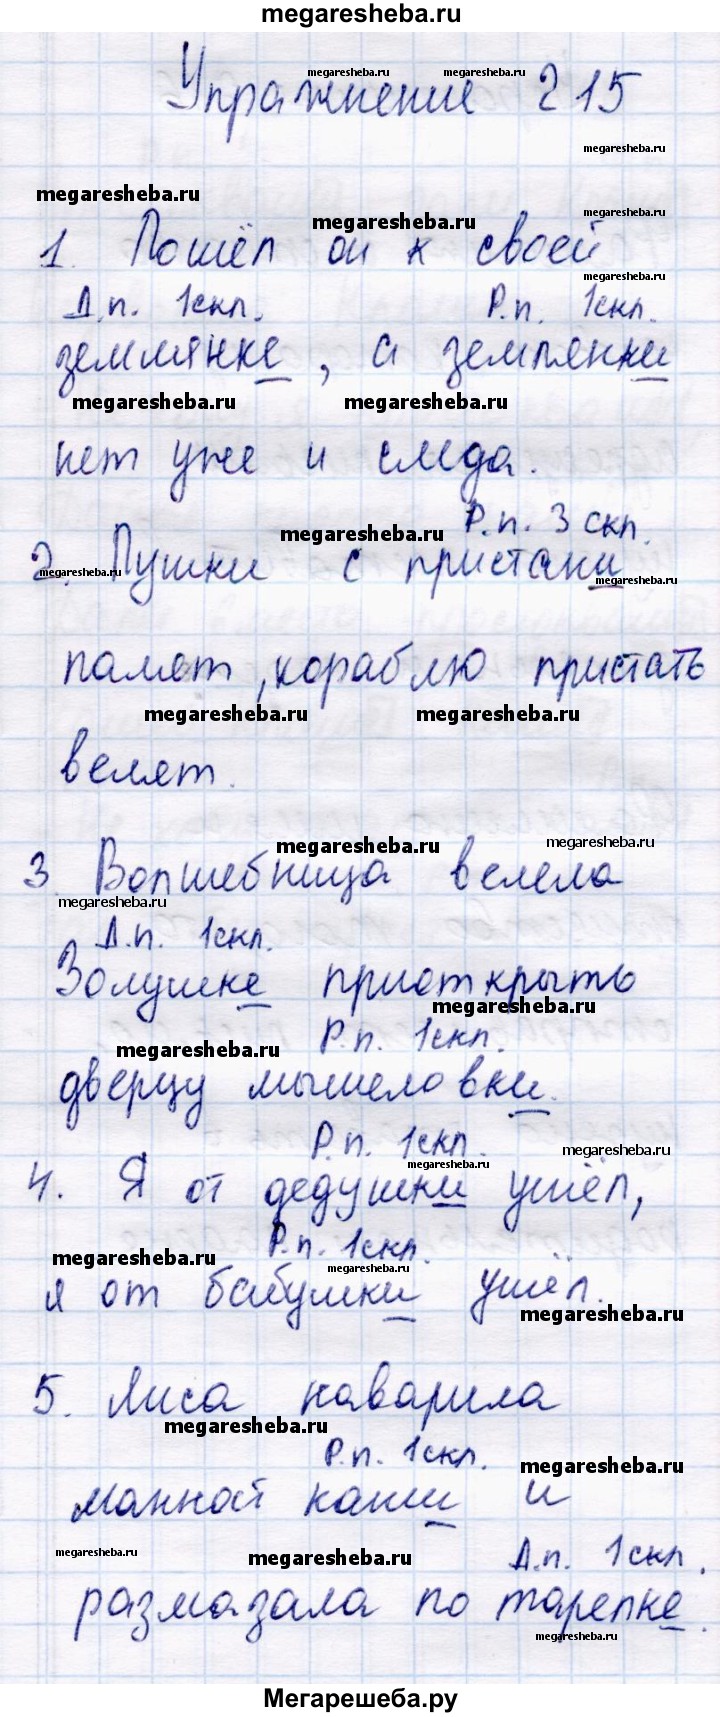 megaresheba.ru
Упражнение 215
megaresheba.ru megaresheba.ru
megaresheba.ru
megaresheba.ru
megaresheba.ru
megaresheba.ru
1. Пошёл он к своей
megaresheba.ru
Д.п. 1скл. Р.п. 1скл.
землянке, а землянки
megaresheba.ru megaresheba.ru
нет уже и следа.
Р.п. 3 скл.
megaresheba.ru
2. Пушки с пристани
megaresheba.ru megaresheba.ru
палят, кораблю пристать
megaresheba.ru megaresheba.ru
велят.
megaresheba.ru megaresheba.ru
3. Волшебница велела
megaresheba.ru
Д.п. 1скл.
Золушке приоткрыть
megaresheba.ru
Р.п. 1скл.
megaresheba.ru
дверцу мышеловки.
Р.п. 1скл.
megaresheba.ru
megaresheba.ru
4. Я от дедушки ушёл,
Р.п. 1скл.
megaresheba.ru megaresheba.ru
я от бабушки ушёл.
megaresheba.ru
5. Лиса наварила
megaresheba.ru
Р.п. 1скл.
megaresheba.ru
манной каши и
megaresheba.ru megaresheba.ru
Д.п. 1скл.
размазала по тарелке.
megaresheba.ru
Мегарешеба.ру